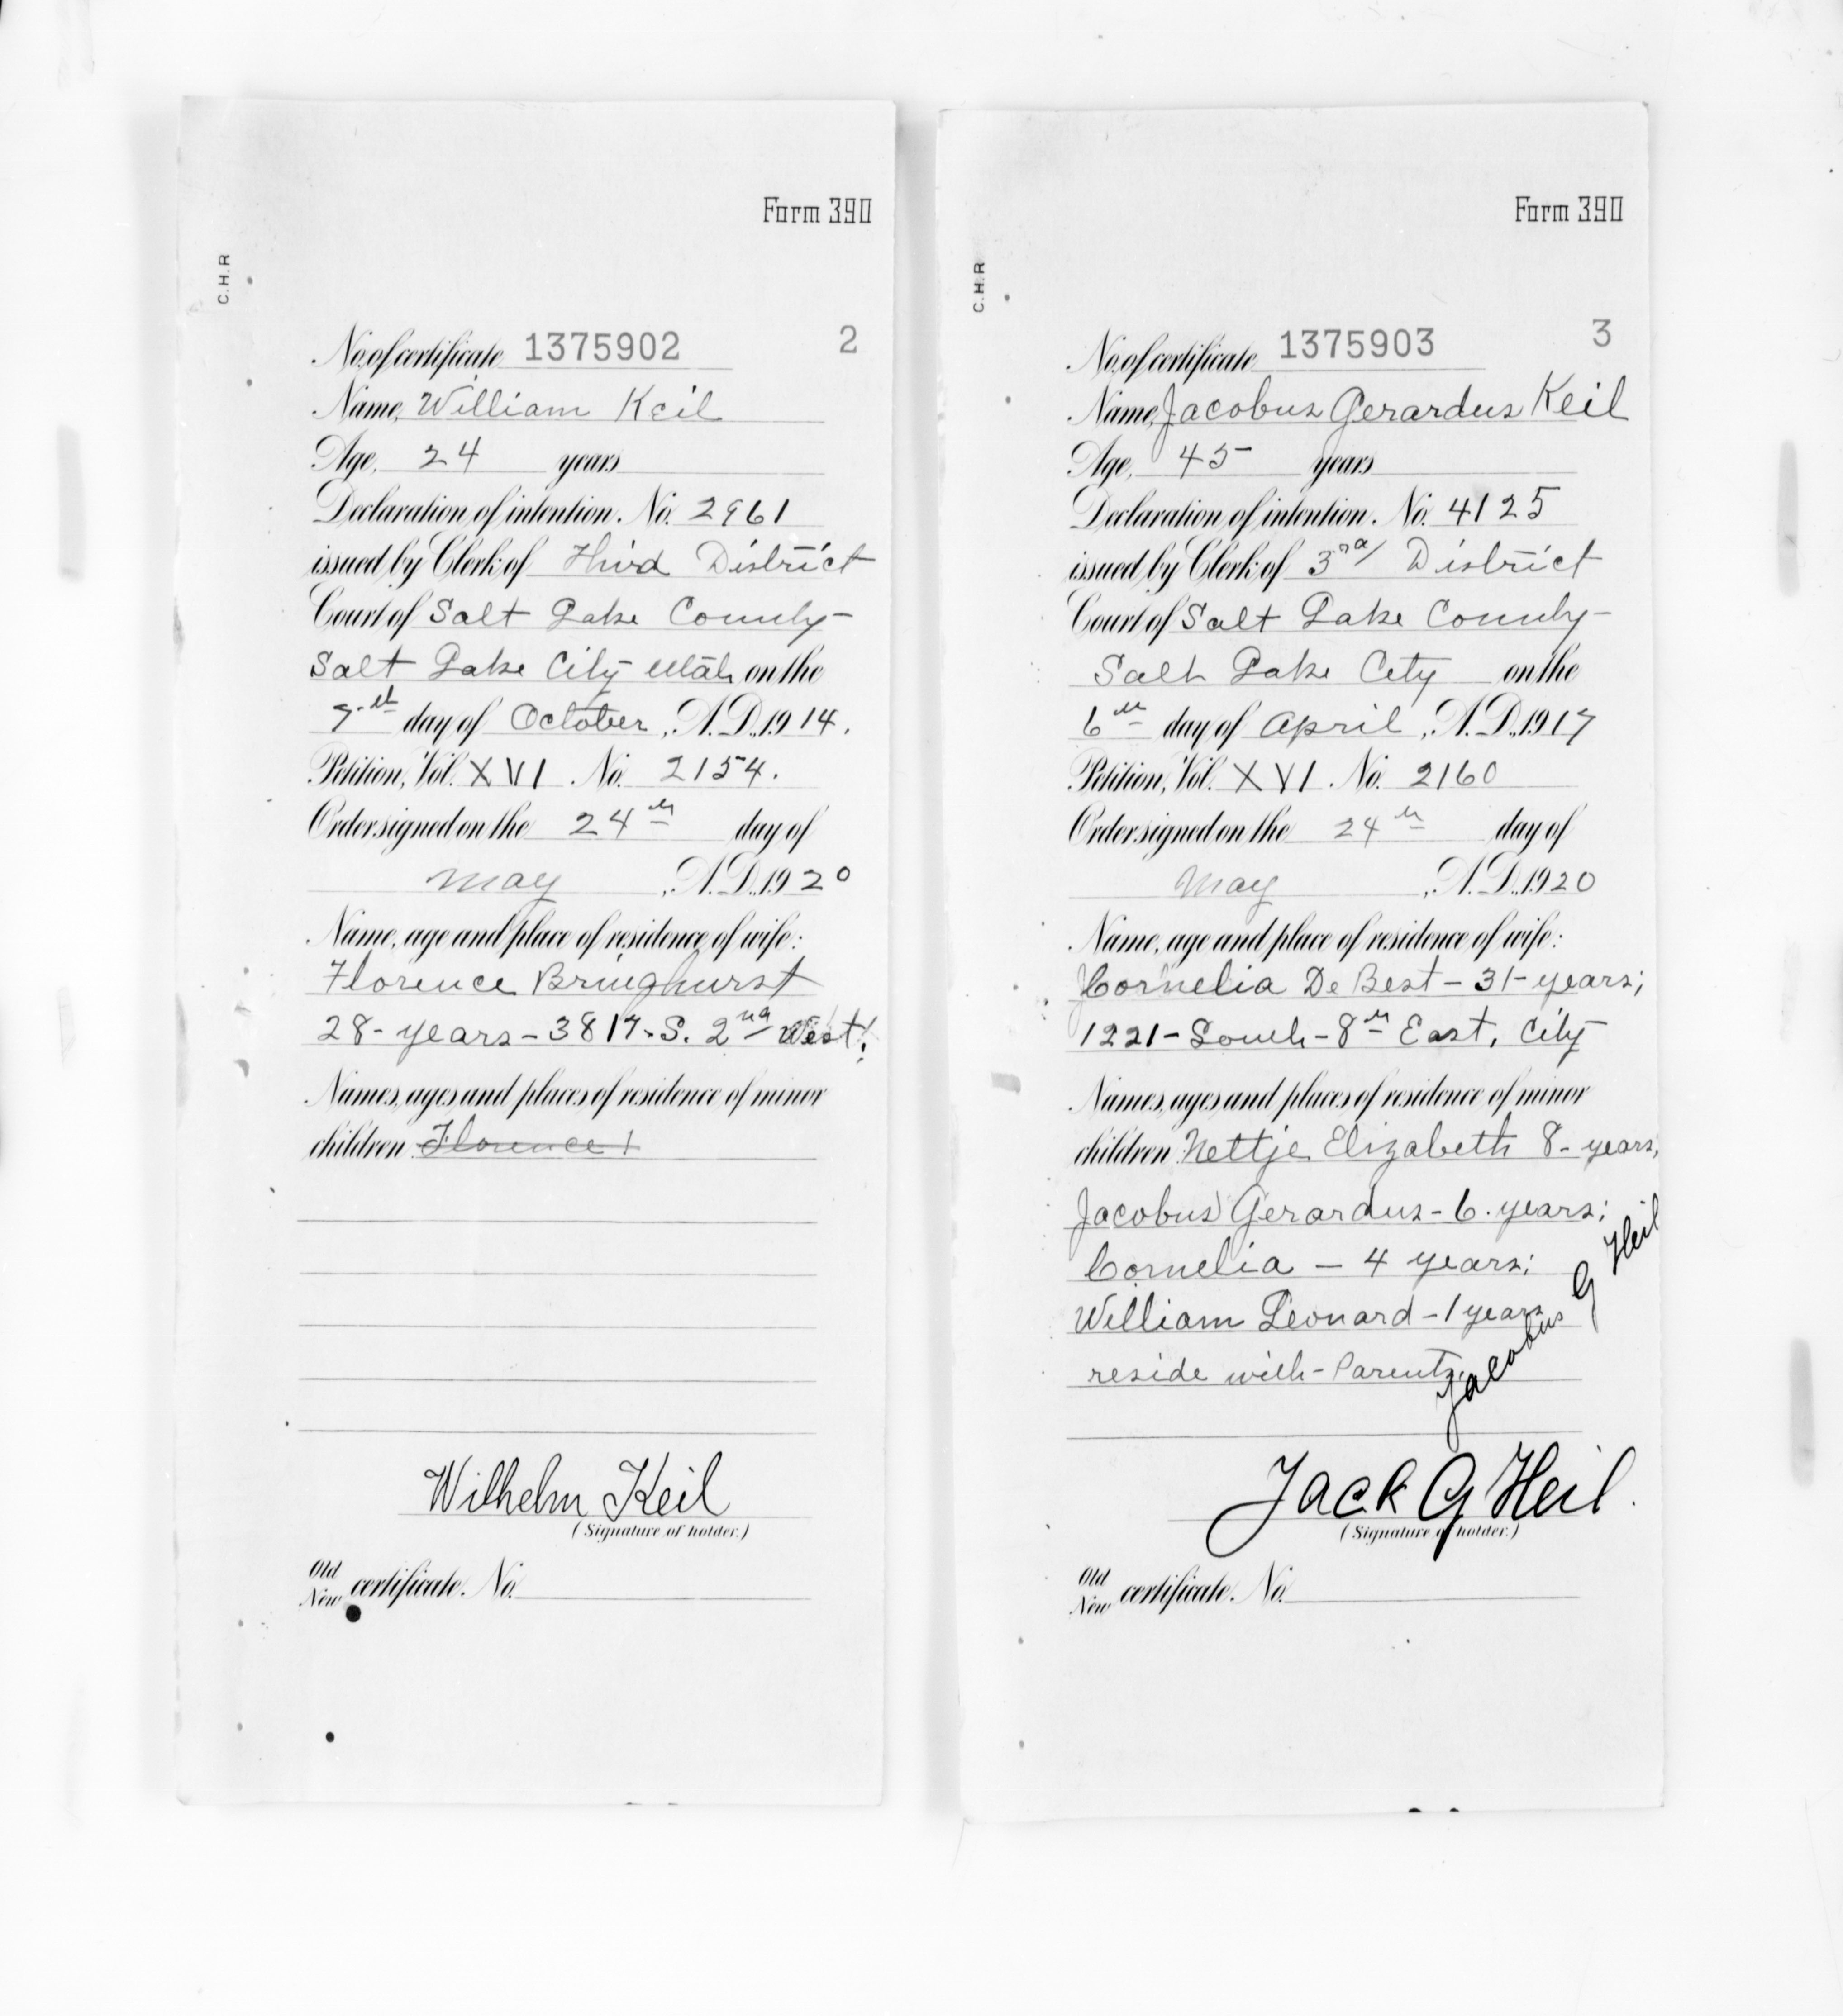 Form 390
C.H.R
No. of certificate 1375902 2
Name, William Keil
Age, 24 years
Declaration of intention. No. 2961
issued by Clerk of Third District
Court of Salt Lake County-
Salt Lake City Utah on the
7th day of October, A.D. 1914.
Petition, Vol. XVI. No. 2154.
Order signed on the 24th day of
May, A.D. 1920
Name, age and place of residence of wife:
Florence Bringhurst
28-years-3817-S. 2nd West.
Names, ages and places of residence of minor
children Florence 1
Wilhelm Keil
(Signature of holder.)
Old
New certificate. No.
Form 390
C.H.R
No. of certificate 1375903 3
Name, Jacobus Gerardus Keil
Age, 45 years
Declaration of intention. No. 4125
issued by Clerk of 3rd District
Court of Salt Lake County-
Salt Lake City on the
6th day of April, A.D. 1917
Petition, Vol. XVI. No. 2160
Order signed on the 24th day of
May, A.D. 1920
Name, age and place of residence of wife:
Cornelia De Best-31-years;
1221-South-8th East, City
Names, ages and places of residence of minor
children: Nettje Elizabeth 8-years,
Jacobus Gerardus-6. years;
Cornelia - 4 years;
William Leonard-1 years
reside with-Parents.
Jacobus G Keil
Jack G Keil.
(Signature of holder.)
Old
New certificate. No.